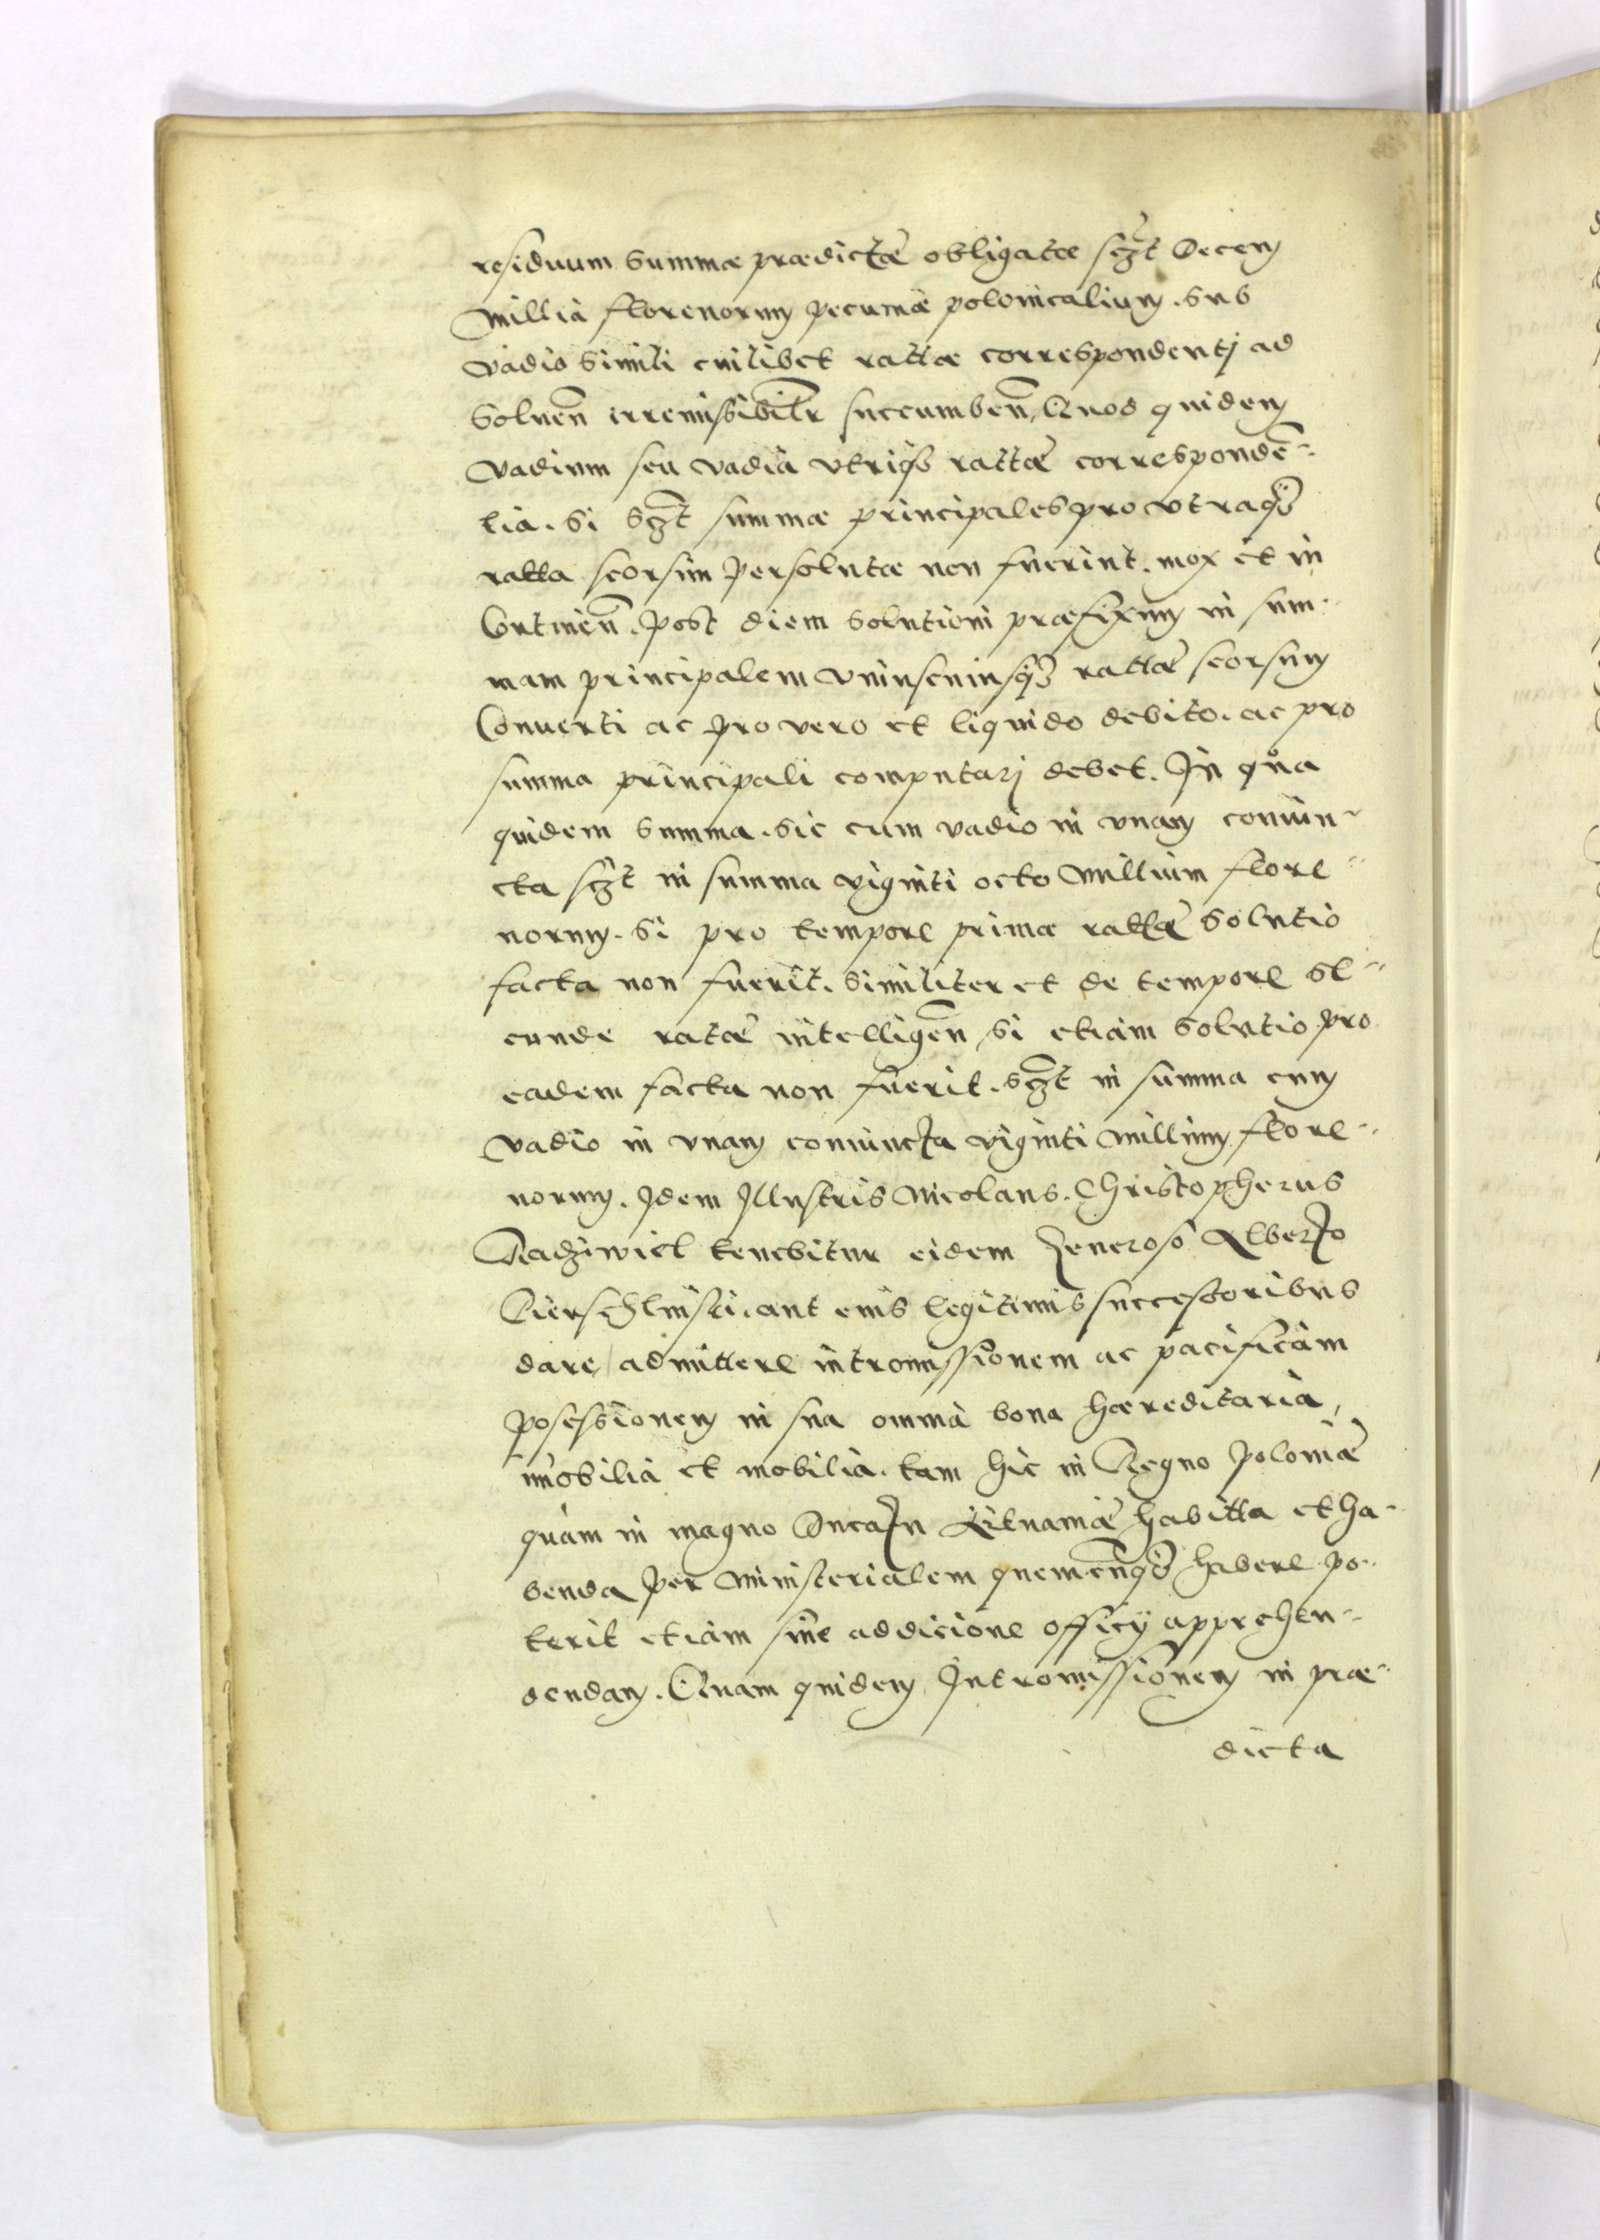 residuum summæ prædictæ obligatæ sczt Decem
Millia florenorum pecuniæ polonicalium. sub
vadio simili cuilibet rattæ correspondentj ad
soluen̄ irremissibilr succumben̄, Quod quidem
vadium seu vadia vtriqȝ rattæ corresponden̄¨
tia. si sczt summæ principales pro vtraqȝ
ratta seorsim persolutæ non fuerint. mox et in
Contineñ. post diem solutioni præfixum in sum¨
mam principalem vniuscuiusqȝ rattæ seorsim
Conuerti ac pro vero et liquido debito. ac pro
summa principali computarj debet. In qua
quidem summa. sic cum vadio in vnam coniun¨
cta sczt in summa viginti octo Millium flore¨
norum. si pro tempore primæ rattæ solutio
facta non fuerit. similiter et de tempore se¨
cunde ratæ intelligen̄, si etiam solutio pro
eadem facta non fuerit. sczt in summa cum
vadio in vnam coniuncta viginti Millium flore¨
norum. Idem Illustris Nicolaus. Christopherus
Radziwiel tenebitur eidem Generoso Alberto
aut eius legitimis successoribus
dare, admittere intromissionem ac pacificam
possessionem in sua omnia bona hæreditaria,
im̄obilia et mobilia. tam hic in Regno Poloniæ
quam in magno Ducatu Lituaniæ habitta et ha¨
benda per Ministerialem quemcūqȝ habere po¨
terit etiam sine addicione officÿ apprehen¨
dendam. Quam quidem Intromissionem in præ¨
dicta